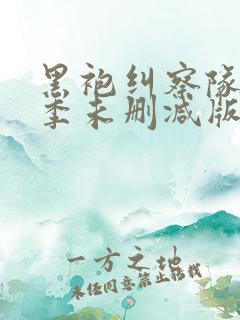 黑袍纠察队
季未删减版
一方之地
未经同意禁止转载